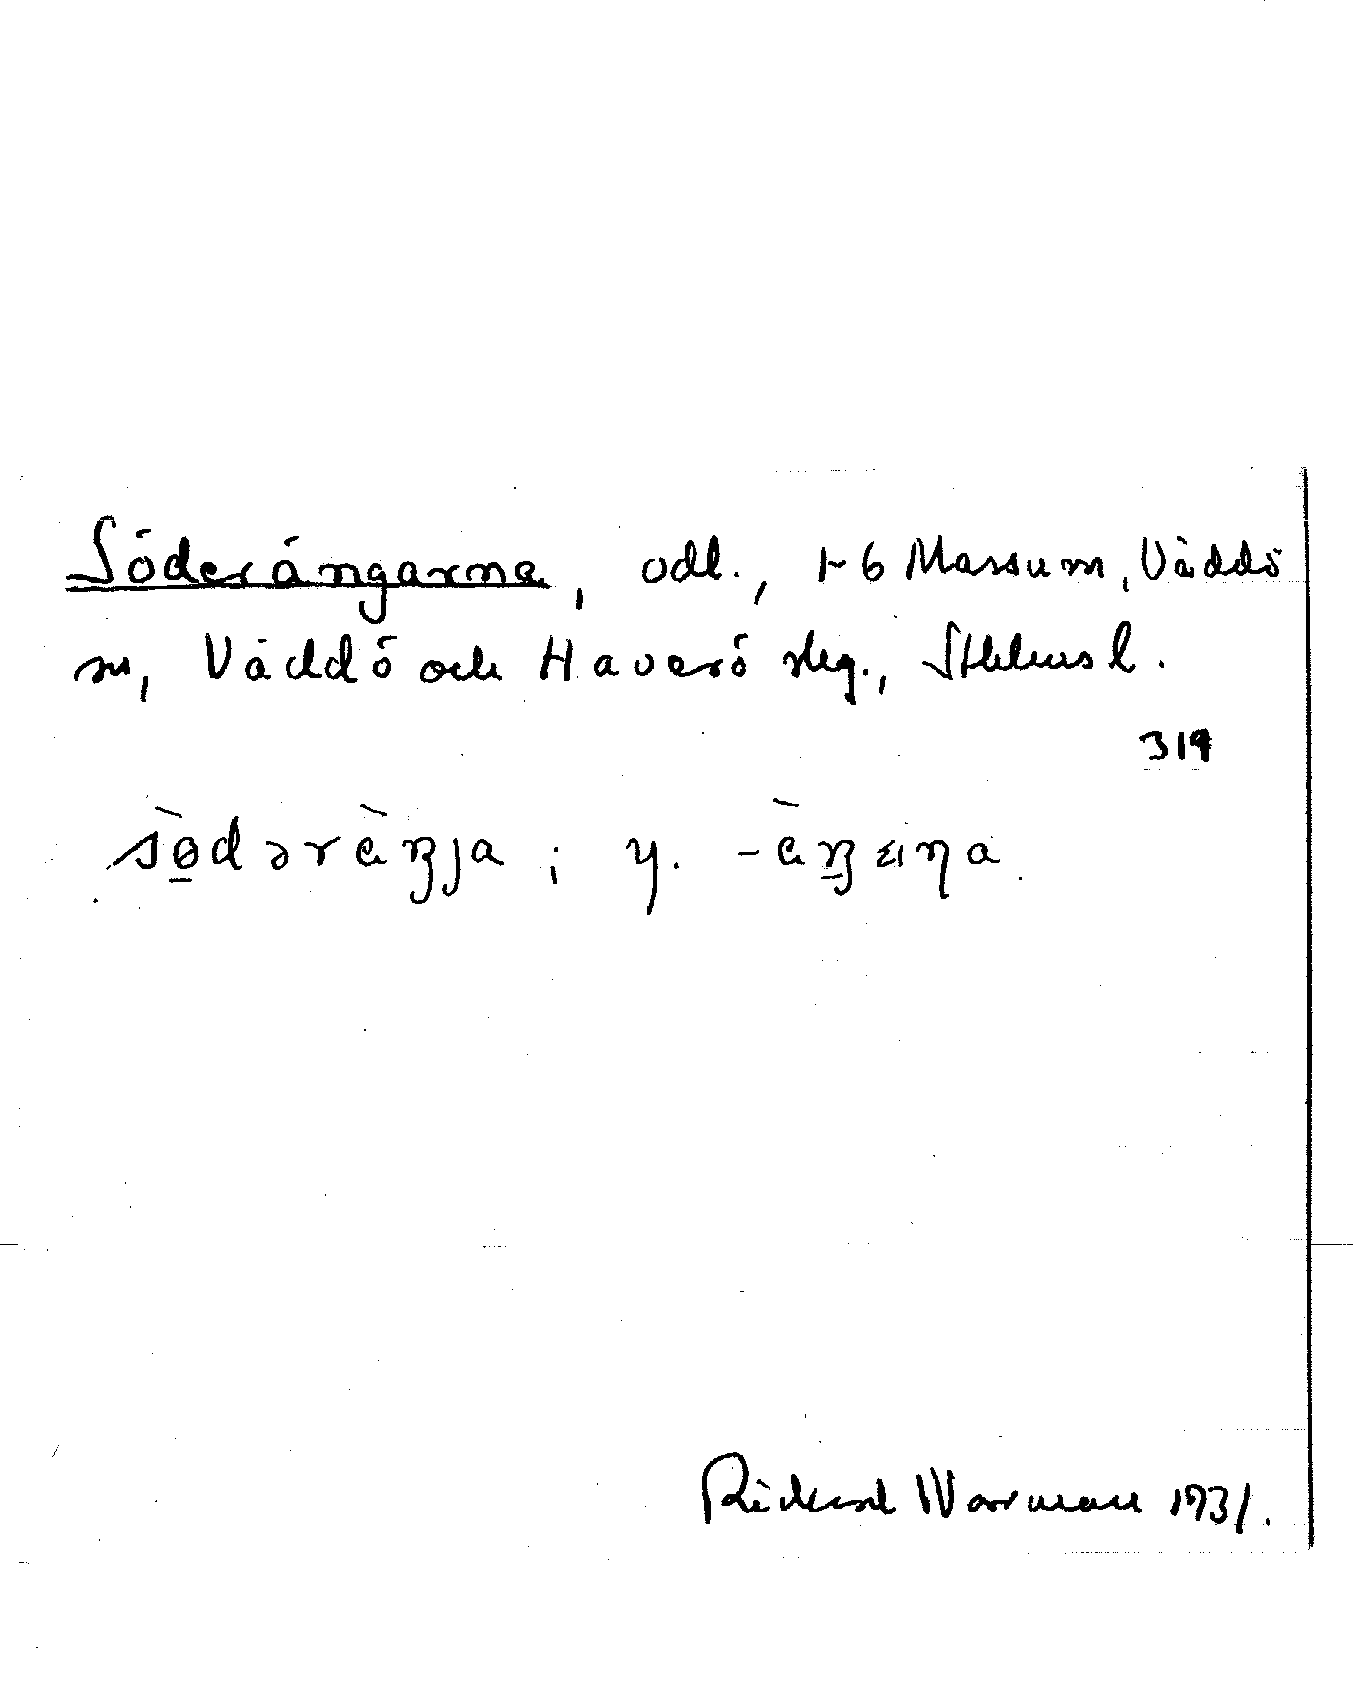 Söderängarna, odl., 1-6 Massum, Väddö
sn, Väddö och Häverö skg., Sthlms l.
319
sö̀dəràŋja ; y. -àŋaɳa
Rickard Wärman 1931.